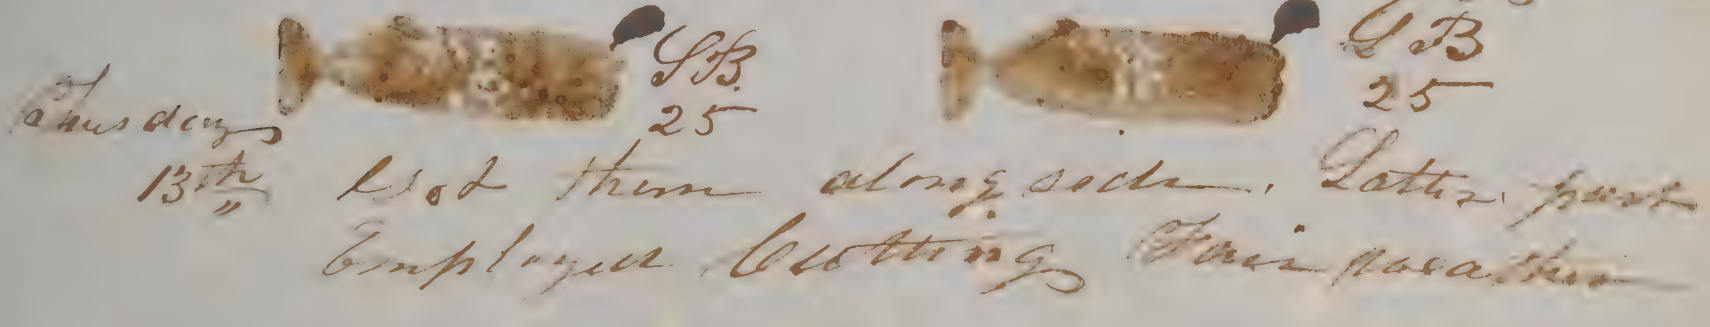 S B. L B
25 25
Thursday
13th got them along side. Latter part
Employed Cutting Fair weather